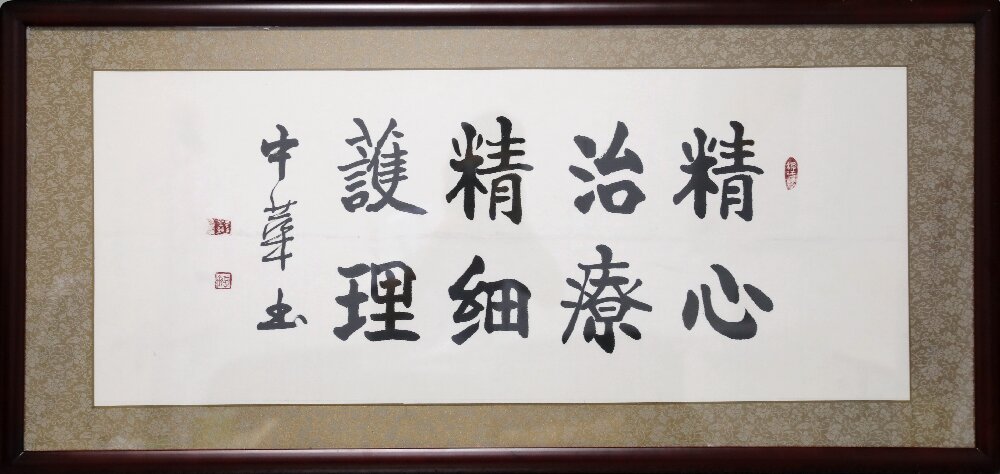 精心
治療
精細
護理
中華书